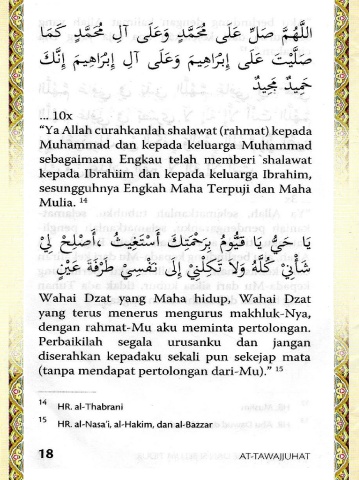 اللَّهُمَّ صَلِّ عَلَى مُحَمَّدٍ وَعَلَى آلِ مُحَمَّدٍ كَمَا
صَلَّيْتَ عَلَى إِبْرَاهِيمَ وَعَلَى آلِ إِبْرَاهِيمَ إِنَّكَ
حَمِيدٌ مَجِيدٌ
... 10x
“Ya Allah curahkanlah shalawat (rahmat) kepada
Muhammad dan kepada keluarga Muhammad
sebagaimana Engkau telah memberi shalawat
kepada Ibrahiim dan kepada keluarga Ibrahim,
sesungguhnya Engkah Maha Terpuji dan Maha
Mulia. 14
يَا حَيُّ يَا قَيُّوْمُ بِرَحْمَتِكَ أَسْتَغِيْثُ ،أَصْلِحْ لِيْ
شَأْنِيْ كُلَّهُ وَلاَ تَكِلْنِيْ إِلَى نَفْسِيْ طَرْفَةَ عَيْنٍ
Wahai Dzat yang Maha hidup, Wahai Dzat
yang terus menerus mengurus makhluk-Nya,
dengan rahmat-Mu aku meminta pertolongan.
Perbaikilah segala urusanku dan jangan
diserahkan kepadaku sekali pun sekejap mata
(tanpa mendapat pertolongan dari-Mu).” 15
14 HR. al-Thabrani
15 HR. al-Nasa'i, al-Hakim, dan al-Bazzar
18 AT-TAWAJJUHAT